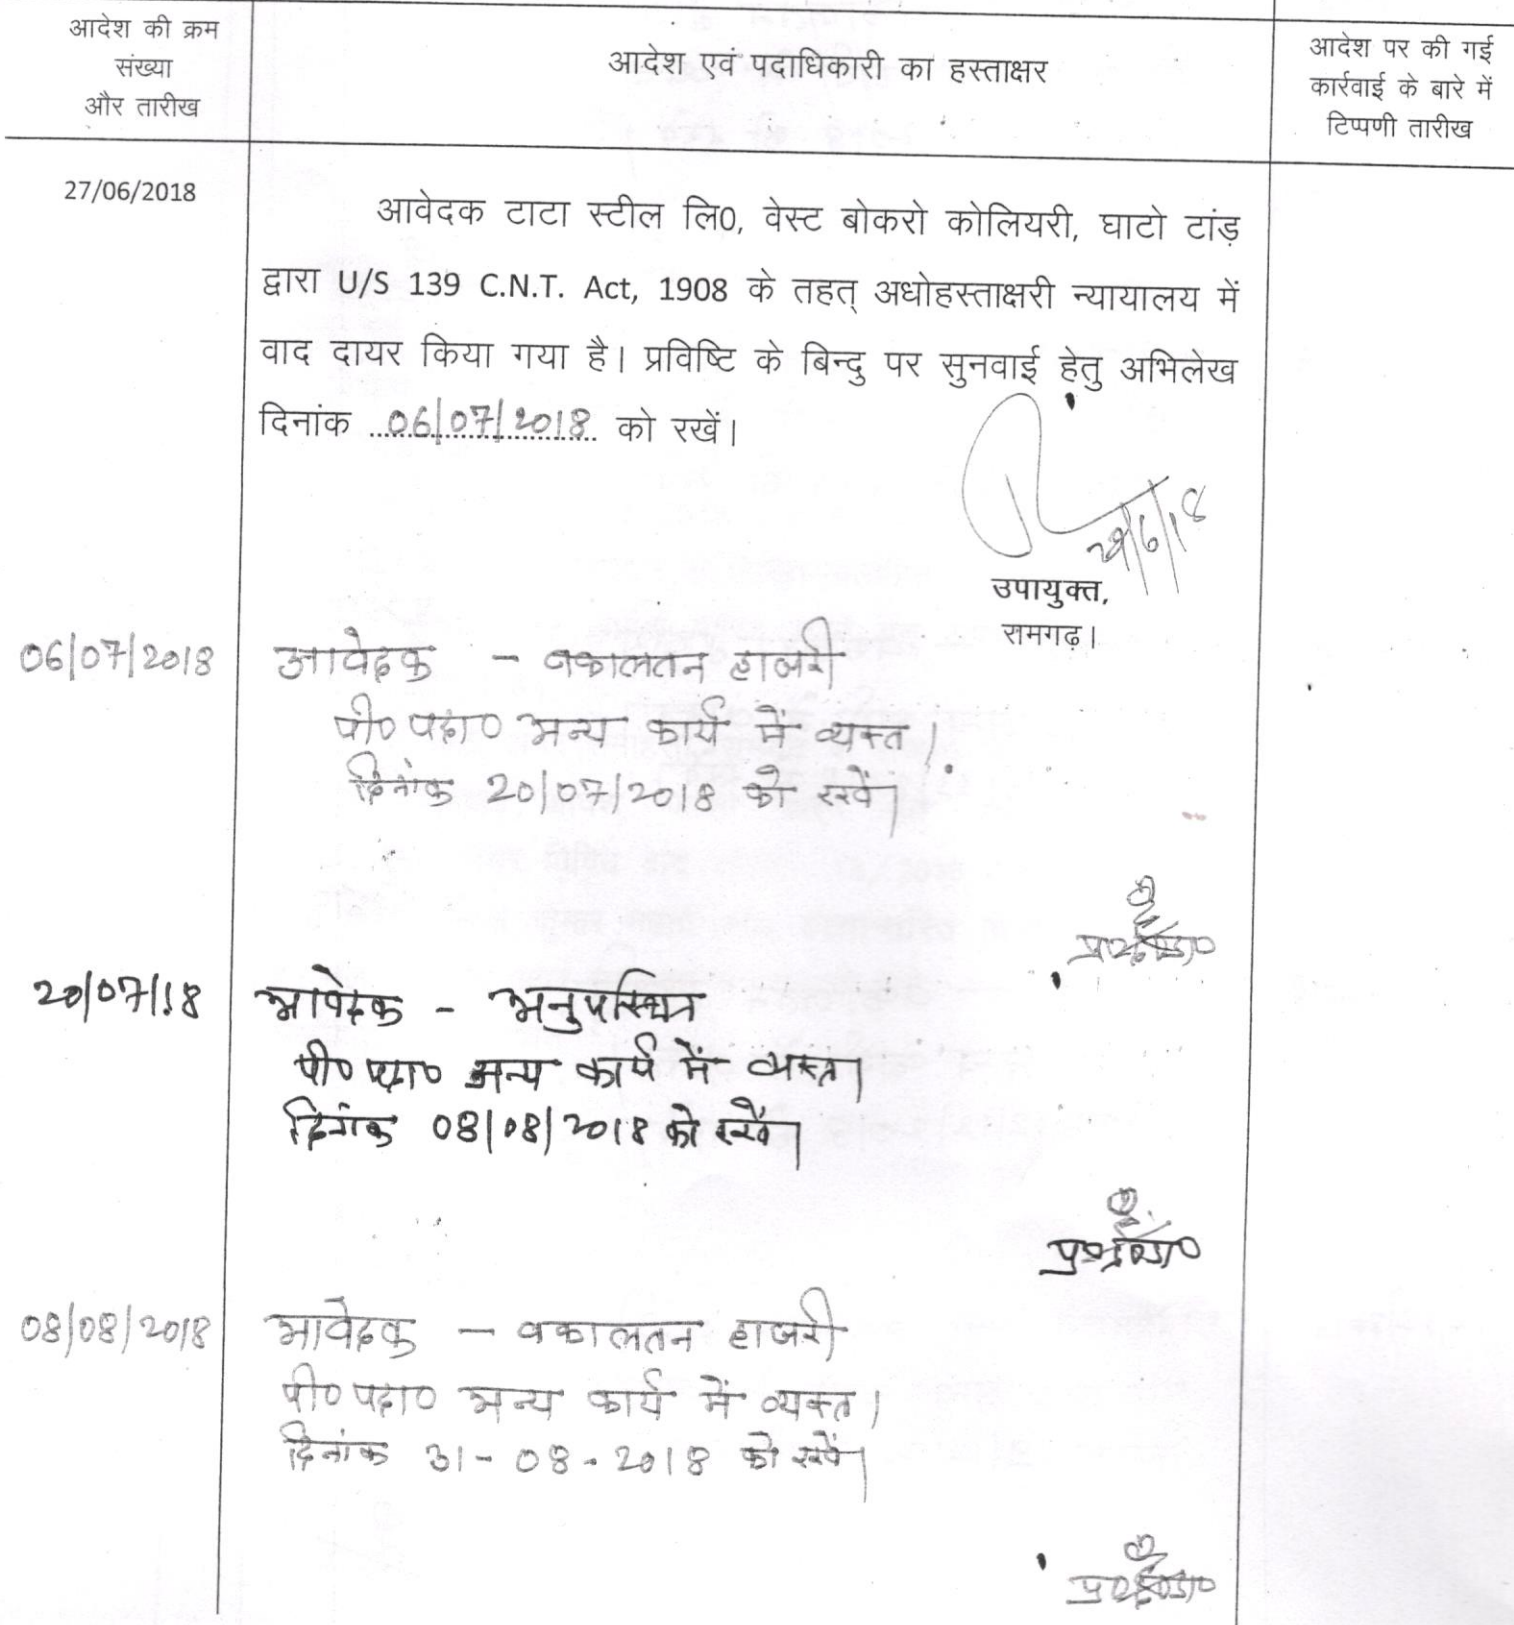 आदेश की क्रम
संख्या
और तारीख
आदेश एवं पदाधिकारी का हस्ताक्षर
आदेश पर की गई
कार्रवाई के बारे में
टिप्पणी तारीख
27/06/2018
आवेदक टाटा स्टील लि0, वेस्ट बोकरो कोलियरी, घाटो टांड़
द्वारा U/S 139 C.N.T. Act, 1908 के तहत् अधोहस्ताक्षरी न्यायालय में
वाद दायर किया गया है। प्रविष्टि के बिन्दु पर सुनवाई हेतु अभिलेख
दिनांक 06/07/2018 को रखें।
उपायुक्त,
रामगढ़।
06/07/2018
आवेदक - वकालतन हाजरी
पी० पदा० अन्य कार्य में व्यस्त।
दिनांक 20/07/2018 को रखें।
20/07/18
आवेदक - अनुपस्थित
पी० पदा० अन्य कार्य में व्यस्त।
दिनांक 08/08/2018 को रखें।
08/08/2018
आवेदक - वकालतन हाजरी
पी० पदा० अन्य कार्य में व्यस्त।
दिनांक 31-08-2018 को रखें।